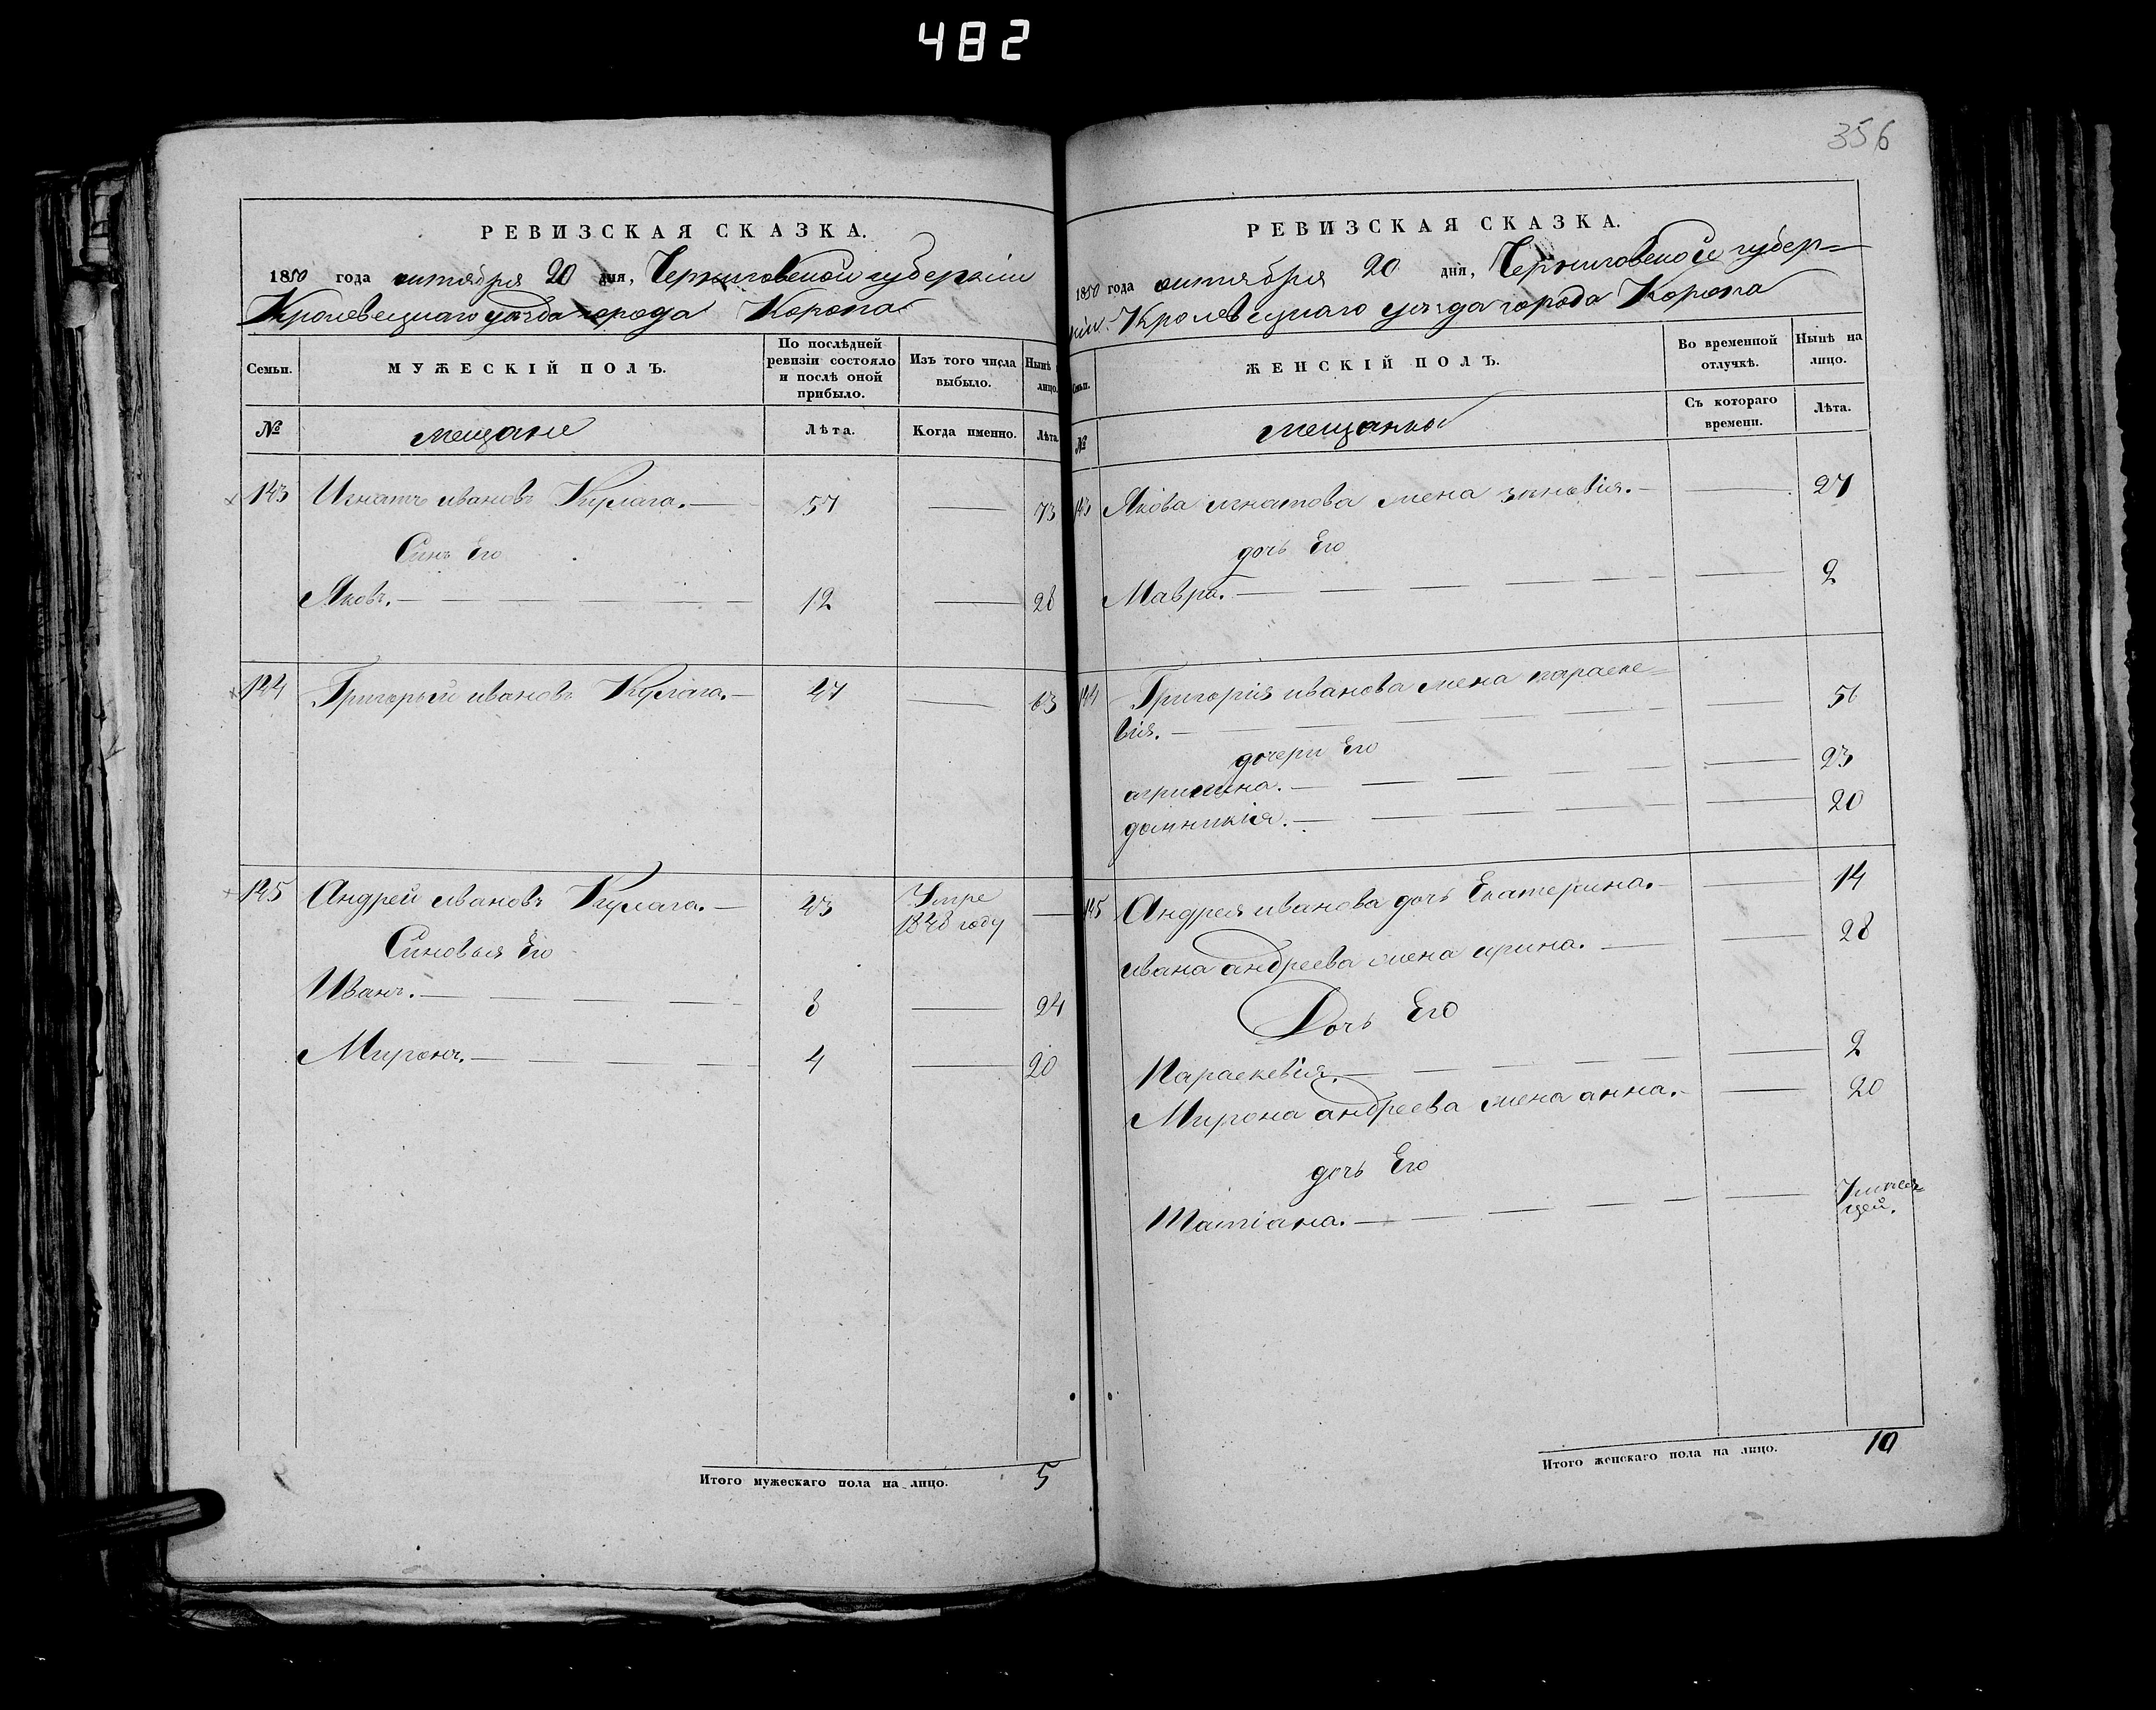 482
РЕВИЗСКАЯ СКАЗКА.
1850 года октября 20 дня, Черниговской губерніи
Кролевецкаго уѣзда города Коропа
Семьи.
МУЖЕСКІЙ ПОЛЪ.
По послѣдней ревизіи состояло и послѣ оной прибыло.
Изъ того числа выбыло.
Нынѣ лицо.
№
мещане
Лѣта.
Когда именно.
Лѣта
143 Игнатъ ивановъ Кулага. 57 73
Синъ Его
Яковъ. 12 28
144 Григорьй ивановъ Кулага. 47 63
145 Андрей ивановъ Кулага. 43 Умре
1848 году
Синовья Его
Иванъ. 8 24
Миронъ. 4 20
Итого мужескаго пола на лицо. 5
356
РЕВИЗСКАЯ СКАЗКА.
1850 года октября 20 дня, Черниговской губер=
ніи Кролевецкаго уѣзда города Коропа
Семьи.
ЖЕНСКІЙ ПОЛЪ.
Во временной отлучкѣ.
Нынѣ на лицо.
№
мещанки
Съ котораго времени.
Лѣта.
143 Якова игнатова жена зиновія. 27
дочь Его
Мавра. 2
144 Григорія иванова жена параске=
вія. 56
дочери Его
агрипина. 23
домникія. 20
145 Андрея иванова дочь Екатерина. 14
ивана андреева жена ирина. 28
Дочь Его
Параскевія. 2
Мирона андреева жена анна. 20
дочь Его
Татіана. 7 меся=
цей.
Итого женскаго пола на лицо. 10